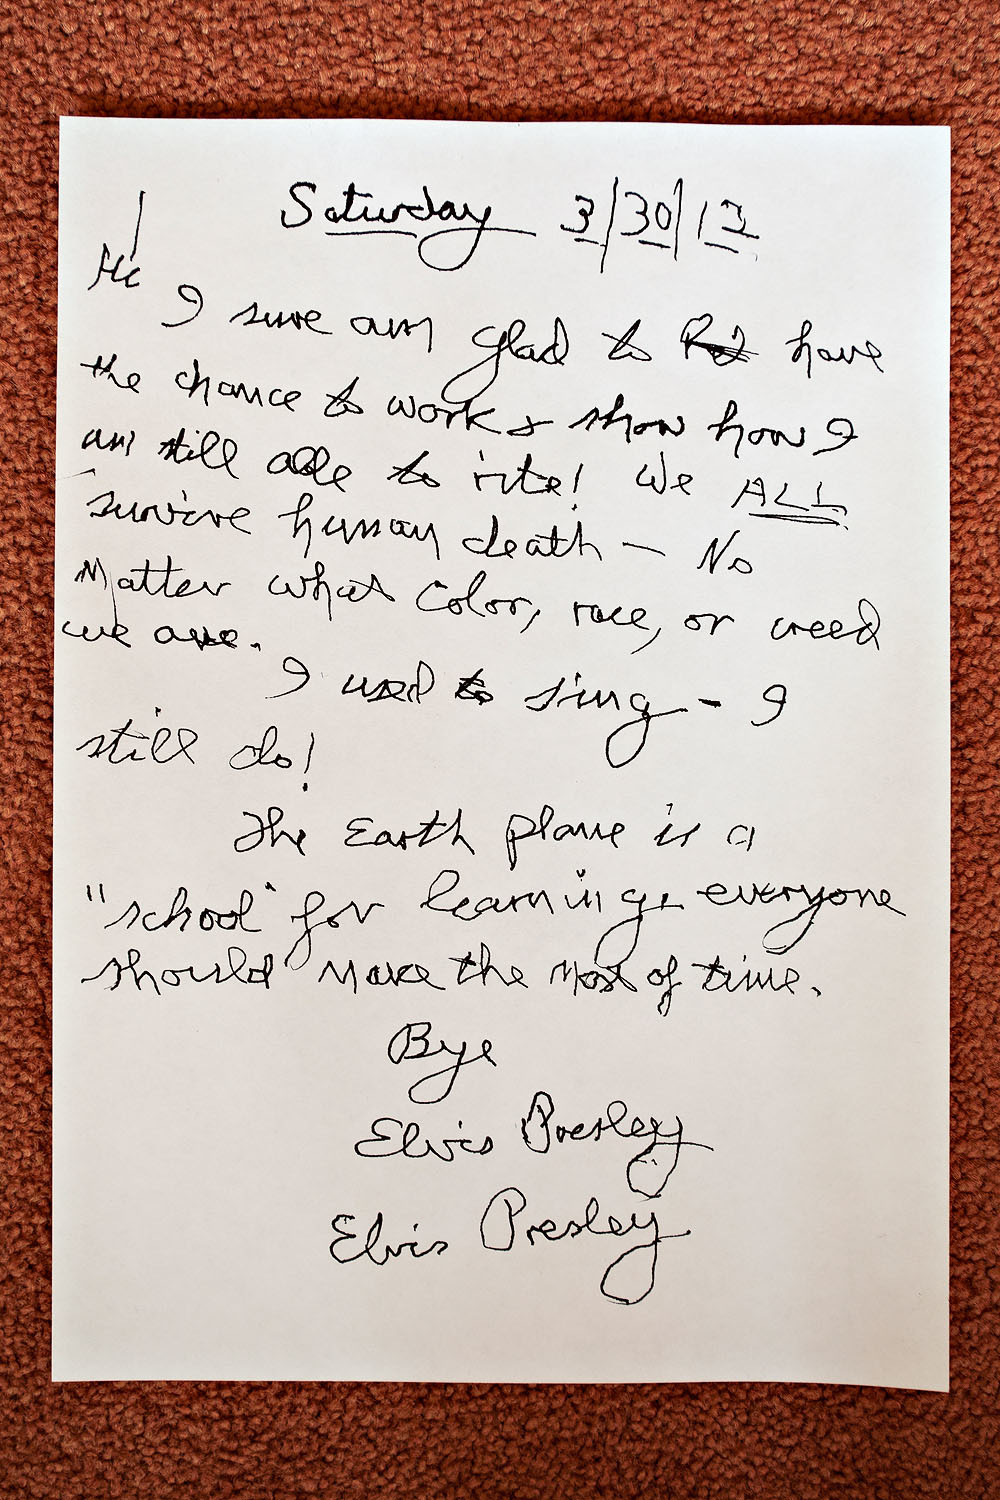 Saturday 3/30/13
Hi
I sure am glad to have
the chance to work & show how I
am still able to rite! We ALL
survive human death — No
Matter what color, race, or creed
we are.
I used to sing - I
still do!
The Earth plane is a
"school" for learning. everyone
should make the most of time.
Bye
Elvis Presley
Elvis Presley